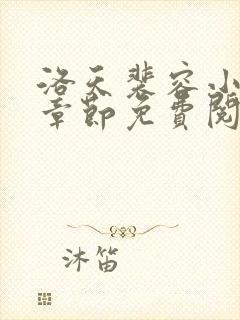 洛天裴容小
章節免費閱
沐笛